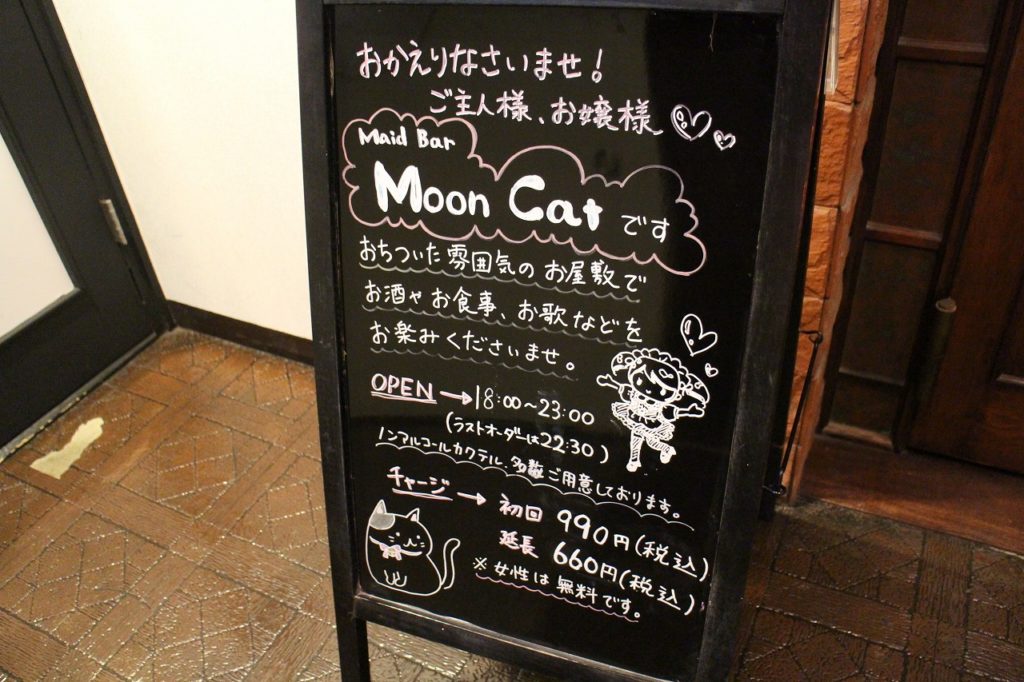 おかえりなさいませ!
ご主人様、お嬢様
Maid Bar
Moon Cat です
おちついた雰囲気のお屋敷で
お酒やお食事、お歌などを
お楽みくださいませ。
OPEN→18:00~23:00
(ラストオーダーは22:30)
ノンアルコールカクテル、多数ご用意しております。
チャージ→初回 990円(税込)
延長 660円(税込)
※女性は無料です。